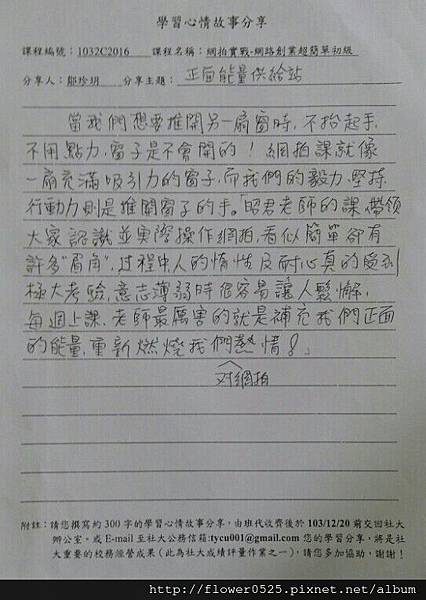 學習心情故事分享
課程編號：1032C2016　課程名稱：網拍實戰-網路創業超簡單初級
分享人：鄢珍玥　分享主題：正面能量供給站
當我們想要推開另一扇窗時，不抬起手，
不用點力，窗子是不會開的！網拍課就像
一扇充滿吸引力的窗子，而我們的毅力、堅持、
行動力則是推開窗子的手。「昭君老師的課，帶領
大家認識並實際操作網拍，看似簡單卻有
許多"眉角"，過程中人的惰性及耐心真的受到
極大考驗，意志薄弱時很容易讓人鬆懈，
每週上課，老師最厲害的就是補充我們正面
的能量，重新燃燒我們熱情！」
对網拍
附註：請您撰寫約 300 字的學習心情故事分享，由班代收齊後於 103/12/20 前交回社大
辦公室。或 E-mail 至社大公務信箱:tycu001@gmail.com 您的學習分享，將是社
大重要的校務經營成果（此為社大成績評量作業之一），請您多加協助，謝謝！
http://flower0525.pixnet.net/album